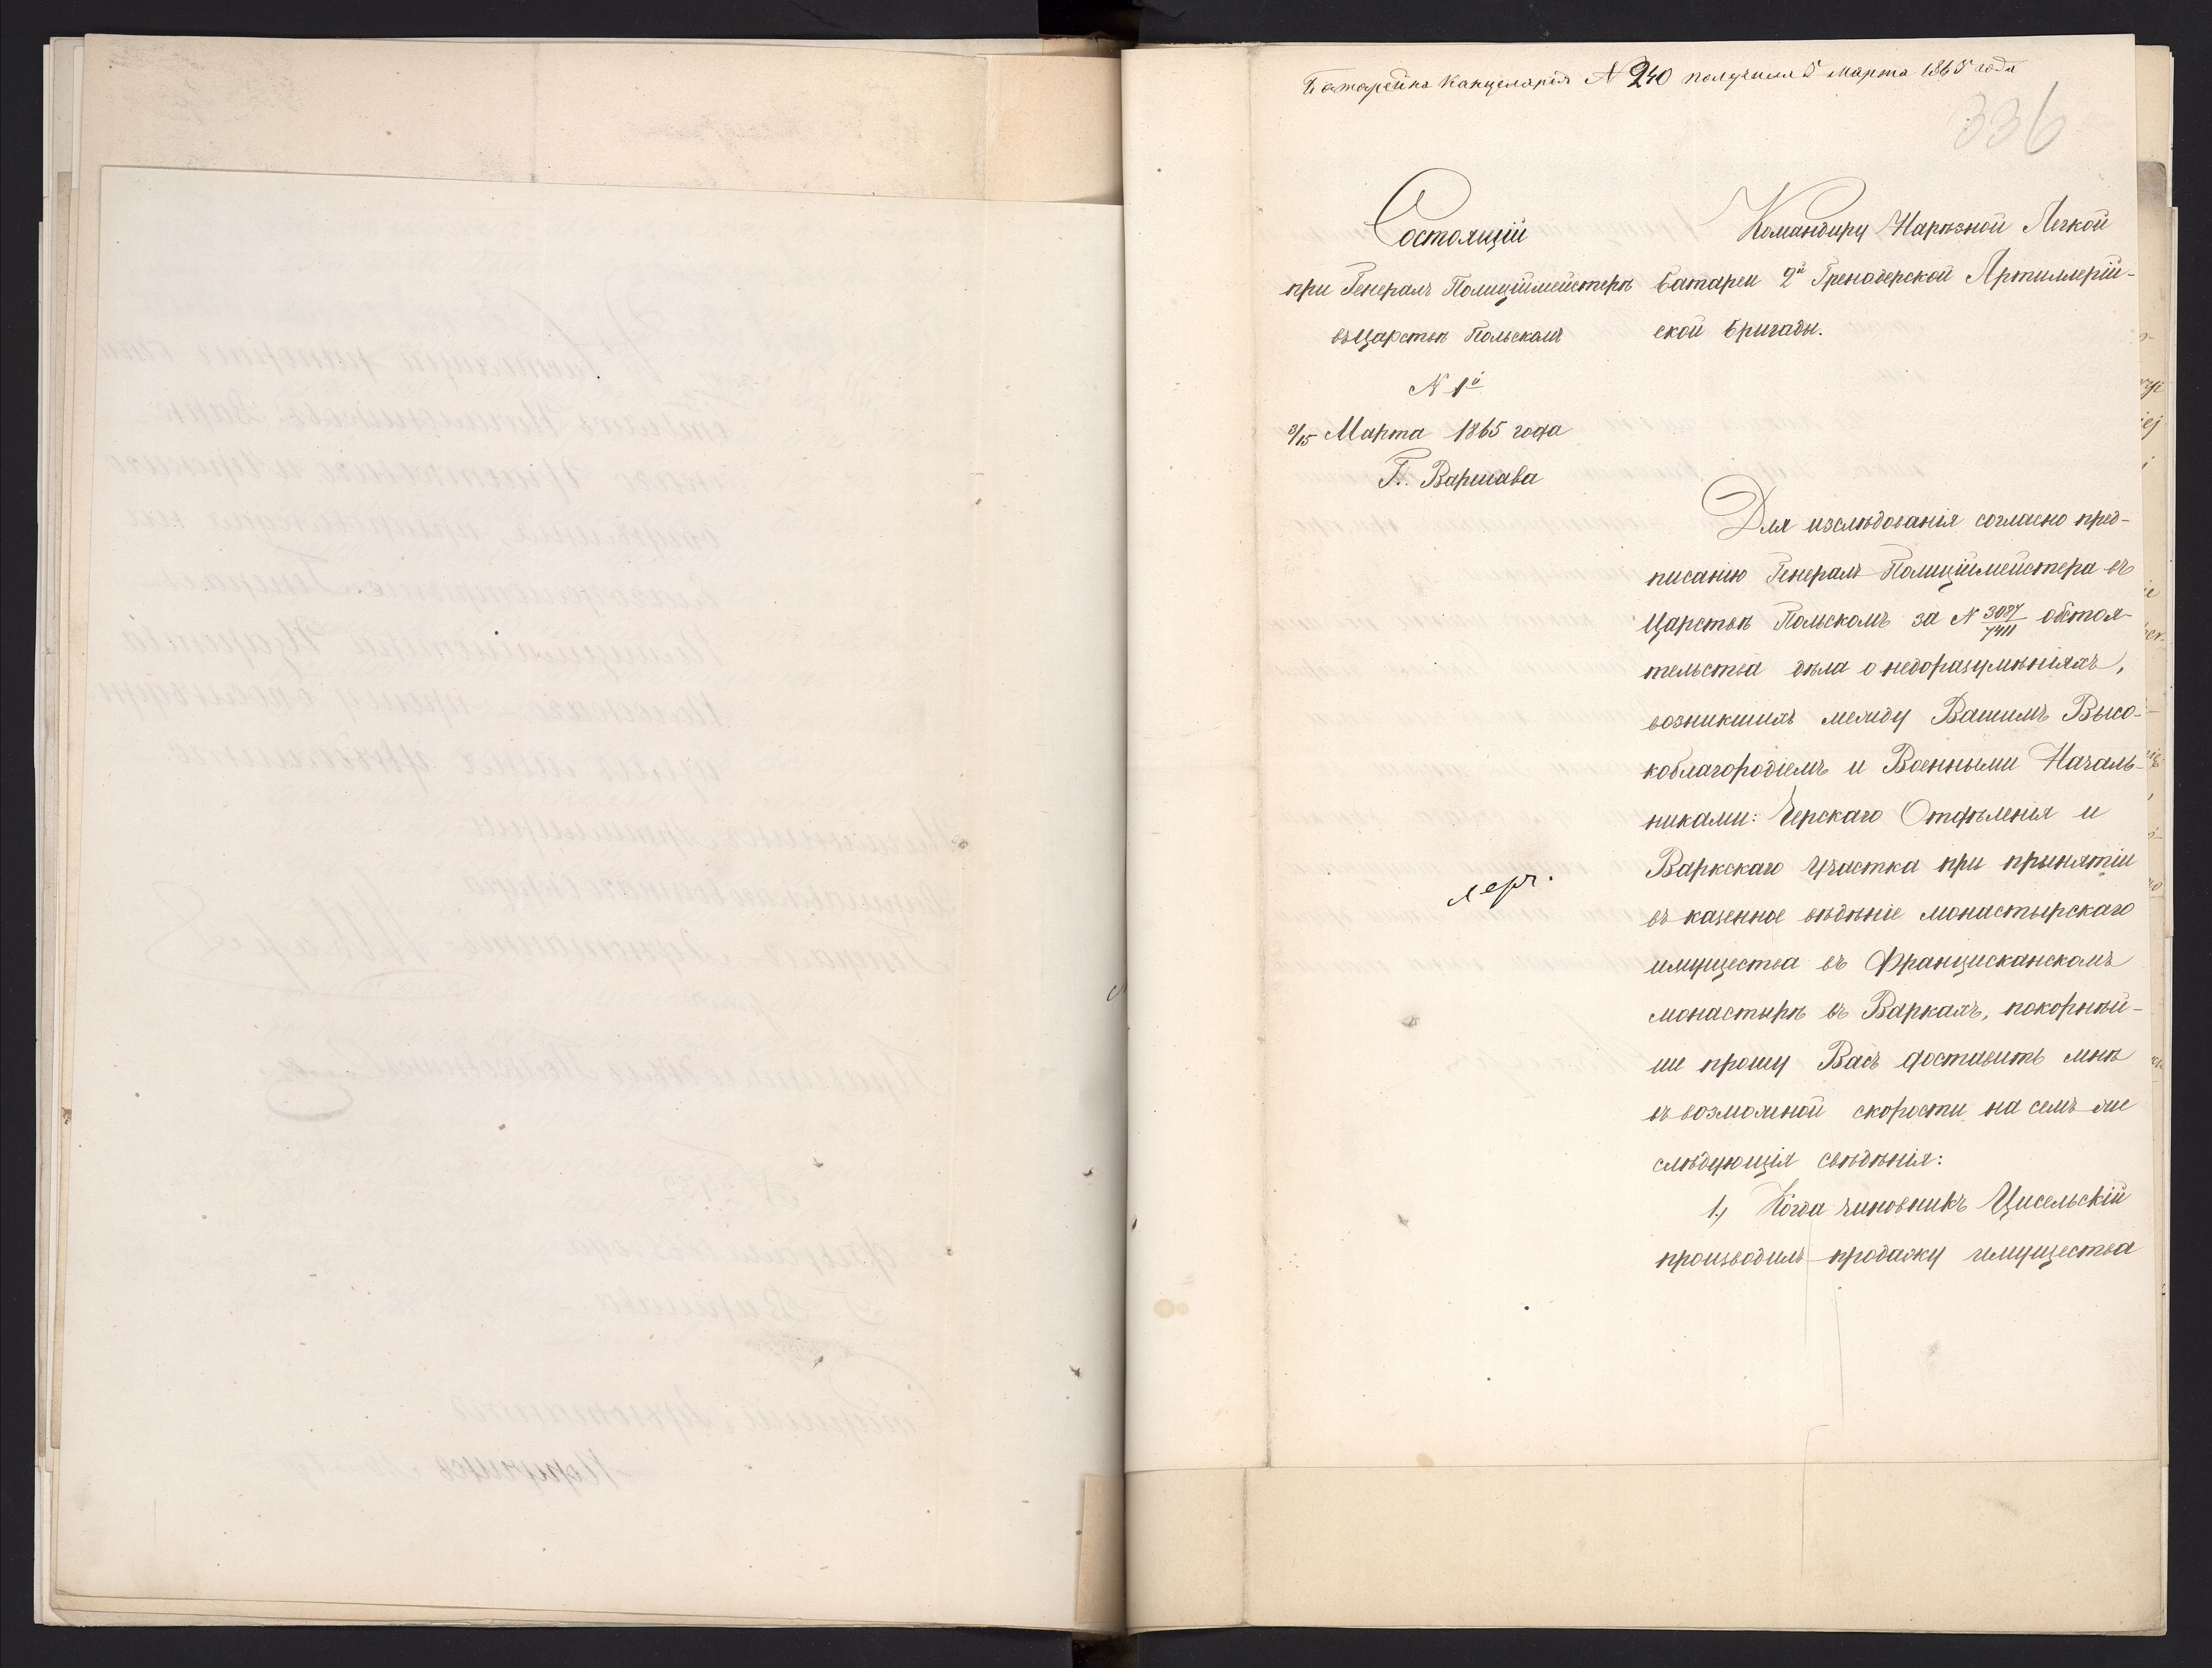 Батарейна Канцелярія N 240 получила 5 Марта 1865 года
336
Состоящій
при Генералъ Полиціймейстерѣ
въ Царствѣ Польскомъ
N 1й
3/15 Марта 1865 года
Г. Варшава
Командиру Нарѣзной Легкой
батареи 2й Гренадерской Артиллерій-
ской бригады.
Для изслѣдованія согласно пред-
писанію Генералъ-Полиціймейстера въ
Царствѣ Польскомъ за N 3087/7411 обстоя-
тельства дѣла о недоразумѣніяхъ,
возникшихъ между Вашимъ Высо-
коблагородіемъ и Военными Началь-
никами: Черскаго Отдѣленія и
Варкскаго Участка при принятіи
въ казенное вѣдѣніе монастырскаго
имущества въ Францисканскомъ
монастырѣ въ Варкахъ, покорнѣй-
ше прошу Васъ доставить мнѣ
въ возможной скорости на семъ же
слѣдующія свѣдѣнія:
1, Когда чиновникъ Цисельскій
производилъ продажу имущества